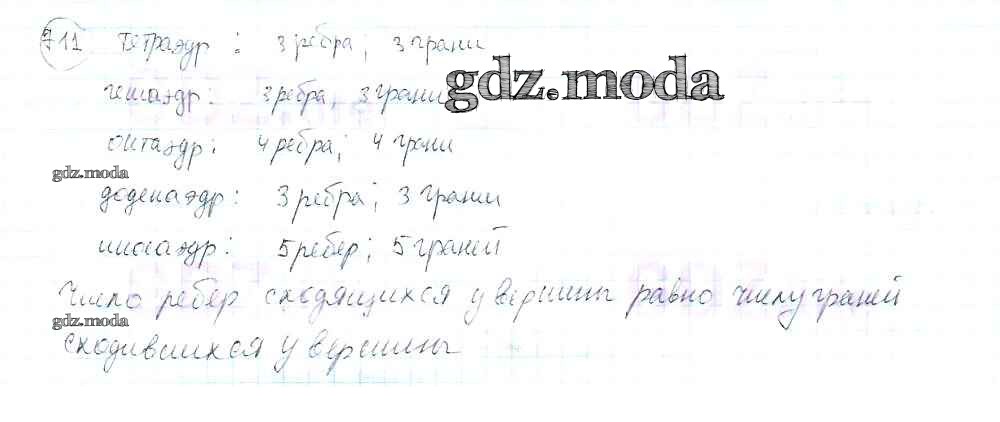 711 тетраэдр : 3 ребра; 3 грани
гексаэдр: 3 ребра, 3 грани
gdz.moda
октаэдр: 4 ребра; 4 грани
gdz.moda
додекаэдр: 3 ребра; 3 грани
икосаэдр: 5 ребер; 5 граней
Число ребер сходящихся у вершины равно числу граней
gdz.moda
сходившихся у вершины